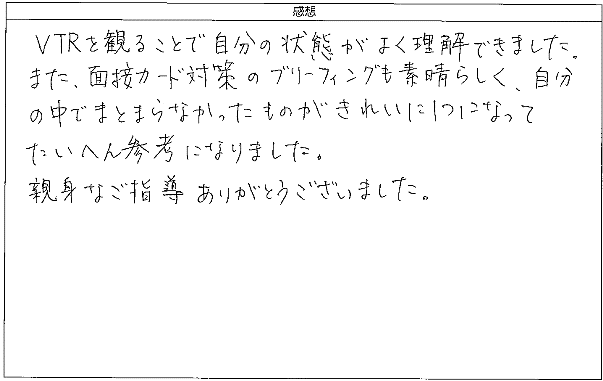 感想
VTRを観ることで自分の状態がよく理解できました。
また、面接カード対策のブリーフィングも素晴らしく、自分
の中でまとまらなかったものがきれいに1つになって
たいへん参考になりました。
親身なご指導ありがとうございました。